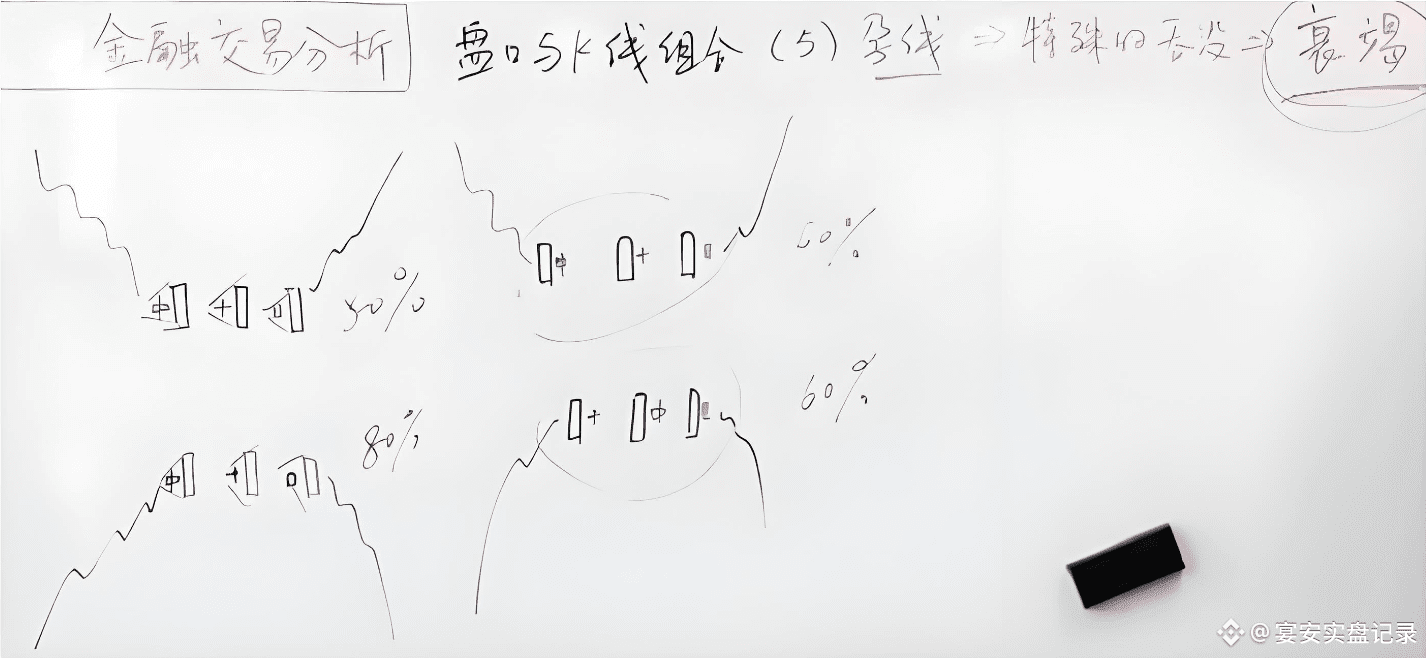 金融交易分析 盘口与K线组合（5）孕线 ⇒ 特殊的吞没 ⇒ 衰竭
50%
80%
60%
@宴安实盘记录